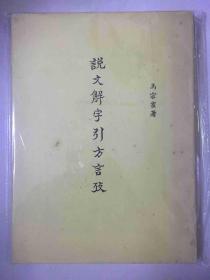 説文解字引方言攷
馬宗霍著